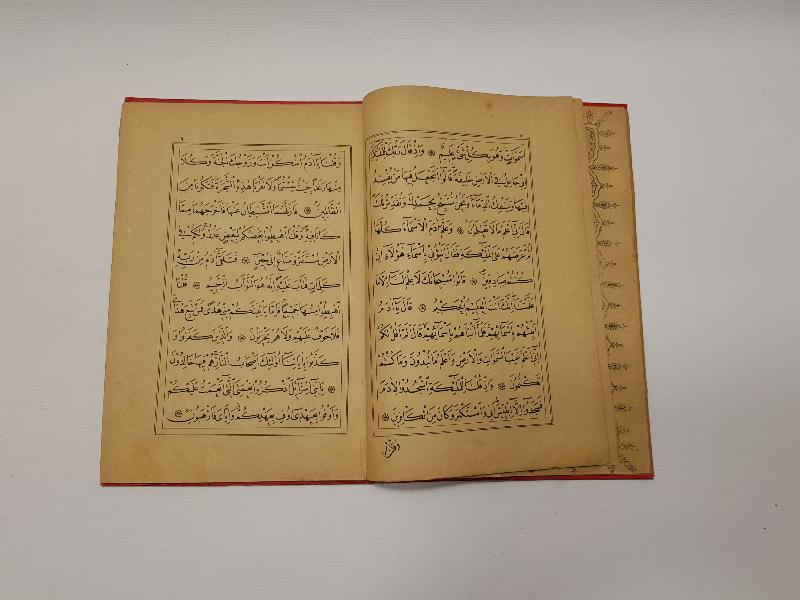 سَمٰوَاتٍ وَهُوَ بِكُلِّ شَيْءٍ عَلِيمٌ ۞ وَاِذْ قَالَ رَبُّكَ لِلْمَلٰٓئِكَةِ
اِنّٖى جَاعِلٌ فِى الْاَرْضِ خَلِيفَةً قَالُوٓا اَتَجْعَلُ فِيهَا مَنْ يُفْسِدُ
فِيهَا وَيَسْفِكُ الدِّمَاءَ وَنَحْنُ نُسَبِّحُ بِحَمْدِكَ وَنُقَدِّسُ لَكَ
قَالَ اِنّٖى اَعْلَمُ مَا لَا تَعْلَمُونَ ۞ وَعَلَّمَ اٰدَمَ الْاَسْمَاءَ كُلَّهَا
ثُمَّ عَرَضَهُمْ عَلَى الْمَلٰٓئِكَةِ فَقَالَ اَنْبِؤُنٖى بِاَسْمَاءِ هٰٓؤُلَاءِ اِنْ
كُنْتُمْ صَادِقِينَ ۞ قَالُوا سُبْحَانَكَ لَا عِلْمَ لَنَا اِلَّا مَا
عَلَّمْتَنَا اِنَّكَ اَنْتَ الْعَلِيمُ الْحَكِيمُ ۞ قَالَ يَا اٰدَمُ
اَنْبِئْهُمْ بِاَسْمَائِهِمْ فَلَمَّا اَنْبَاَهُمْ بِاَسْمَائِهِمْ قَالَ اَلَمْ اَقُلْ لَكُمْ
اِنّٖى اَعْلَمُ غَيْبَ السَّمٰوَاتِ وَالْاَرْضِ وَاَعْلَمُ مَا تُبْدُونَ وَمَا كُنْتُمْ
تَكْتُمُونَ ۞ وَاِذْ قُلْنَا لِلْمَلٰٓئِكَةِ اسْجُدُوا لِاٰدَمَ
فَسَجَدُوٓا اِلَّٓا اِبْلِيسَ اَبٰى وَاسْتَكْبَرَ وَكَانَ مِنَ الْكَافِرِينَ ۞
وقلنا
وَقُلْنَا يَا اٰدَمُ اسْكُنْ اَنْتَ وَزَوْجُكَ الْجَنَّةَ وَكُلَا
مِنْهَا رَغَدًا حَيْثُ شِئْتُمَا وَلَا تَقْرَبَا هٰذِهِ الشَّجَرَةَ فَتَكُونَا مِنَ
الظَّالِمِينَ ۞ فَاَزَلَّهُمَا الشَّيْطَانُ عَنْهَا فَاَخْرَجَهُمَا مِمَّا
كَانَا فِيهِ وَقُلْنَا اهْبِطُوا بَعْضُكُمْ لِبَعْضٍ عَدُوٌّ وَلَكُمْ فِى
الْاَرْضِ مُسْتَقَرٌّ وَمَتَاعٌ اِلٰى حِينٍ ۞ فَتَلَقّٰٓى اٰدَمُ مِنْ رَبِّهِ
كَلِمَاتٍ فَتَابَ عَلَيْهِ اِنَّهُ هُوَ التَّوَّابُ الرَّحِيمُ ۞ قُلْنَا
اهْبِطُوا مِنْهَا جَمِيعًا فَاِمَّا يَاْتِيَنَّكُمْ مِنّٖى هُدًى فَمَنْ تَبِعَ هُدَاىَ
فَلَا خَوْفٌ عَلَيْهِمْ وَلَا هُمْ يَحْزَنُونَ ۞ وَالَّذِينَ كَفَرُوا وَ
كَذَّبُوا بِاٰيَاتِنَا اُولٰٓئِكَ اَصْحَابُ النَّارِ هُمْ فِيهَا خَالِدُونَ
۞ يَا بَنِى اِسْرَائِلَ اذْكُرُوا نِعْمَتِىَ الَّتِى اَنْعَمْتُ عَلَيْكُمْ
وَاَوْفُوا بِعَهْدِى اُوفِ بِعَهْدِكُمْ وَاِيَّاىَ فَارْهَبُونِ ۞